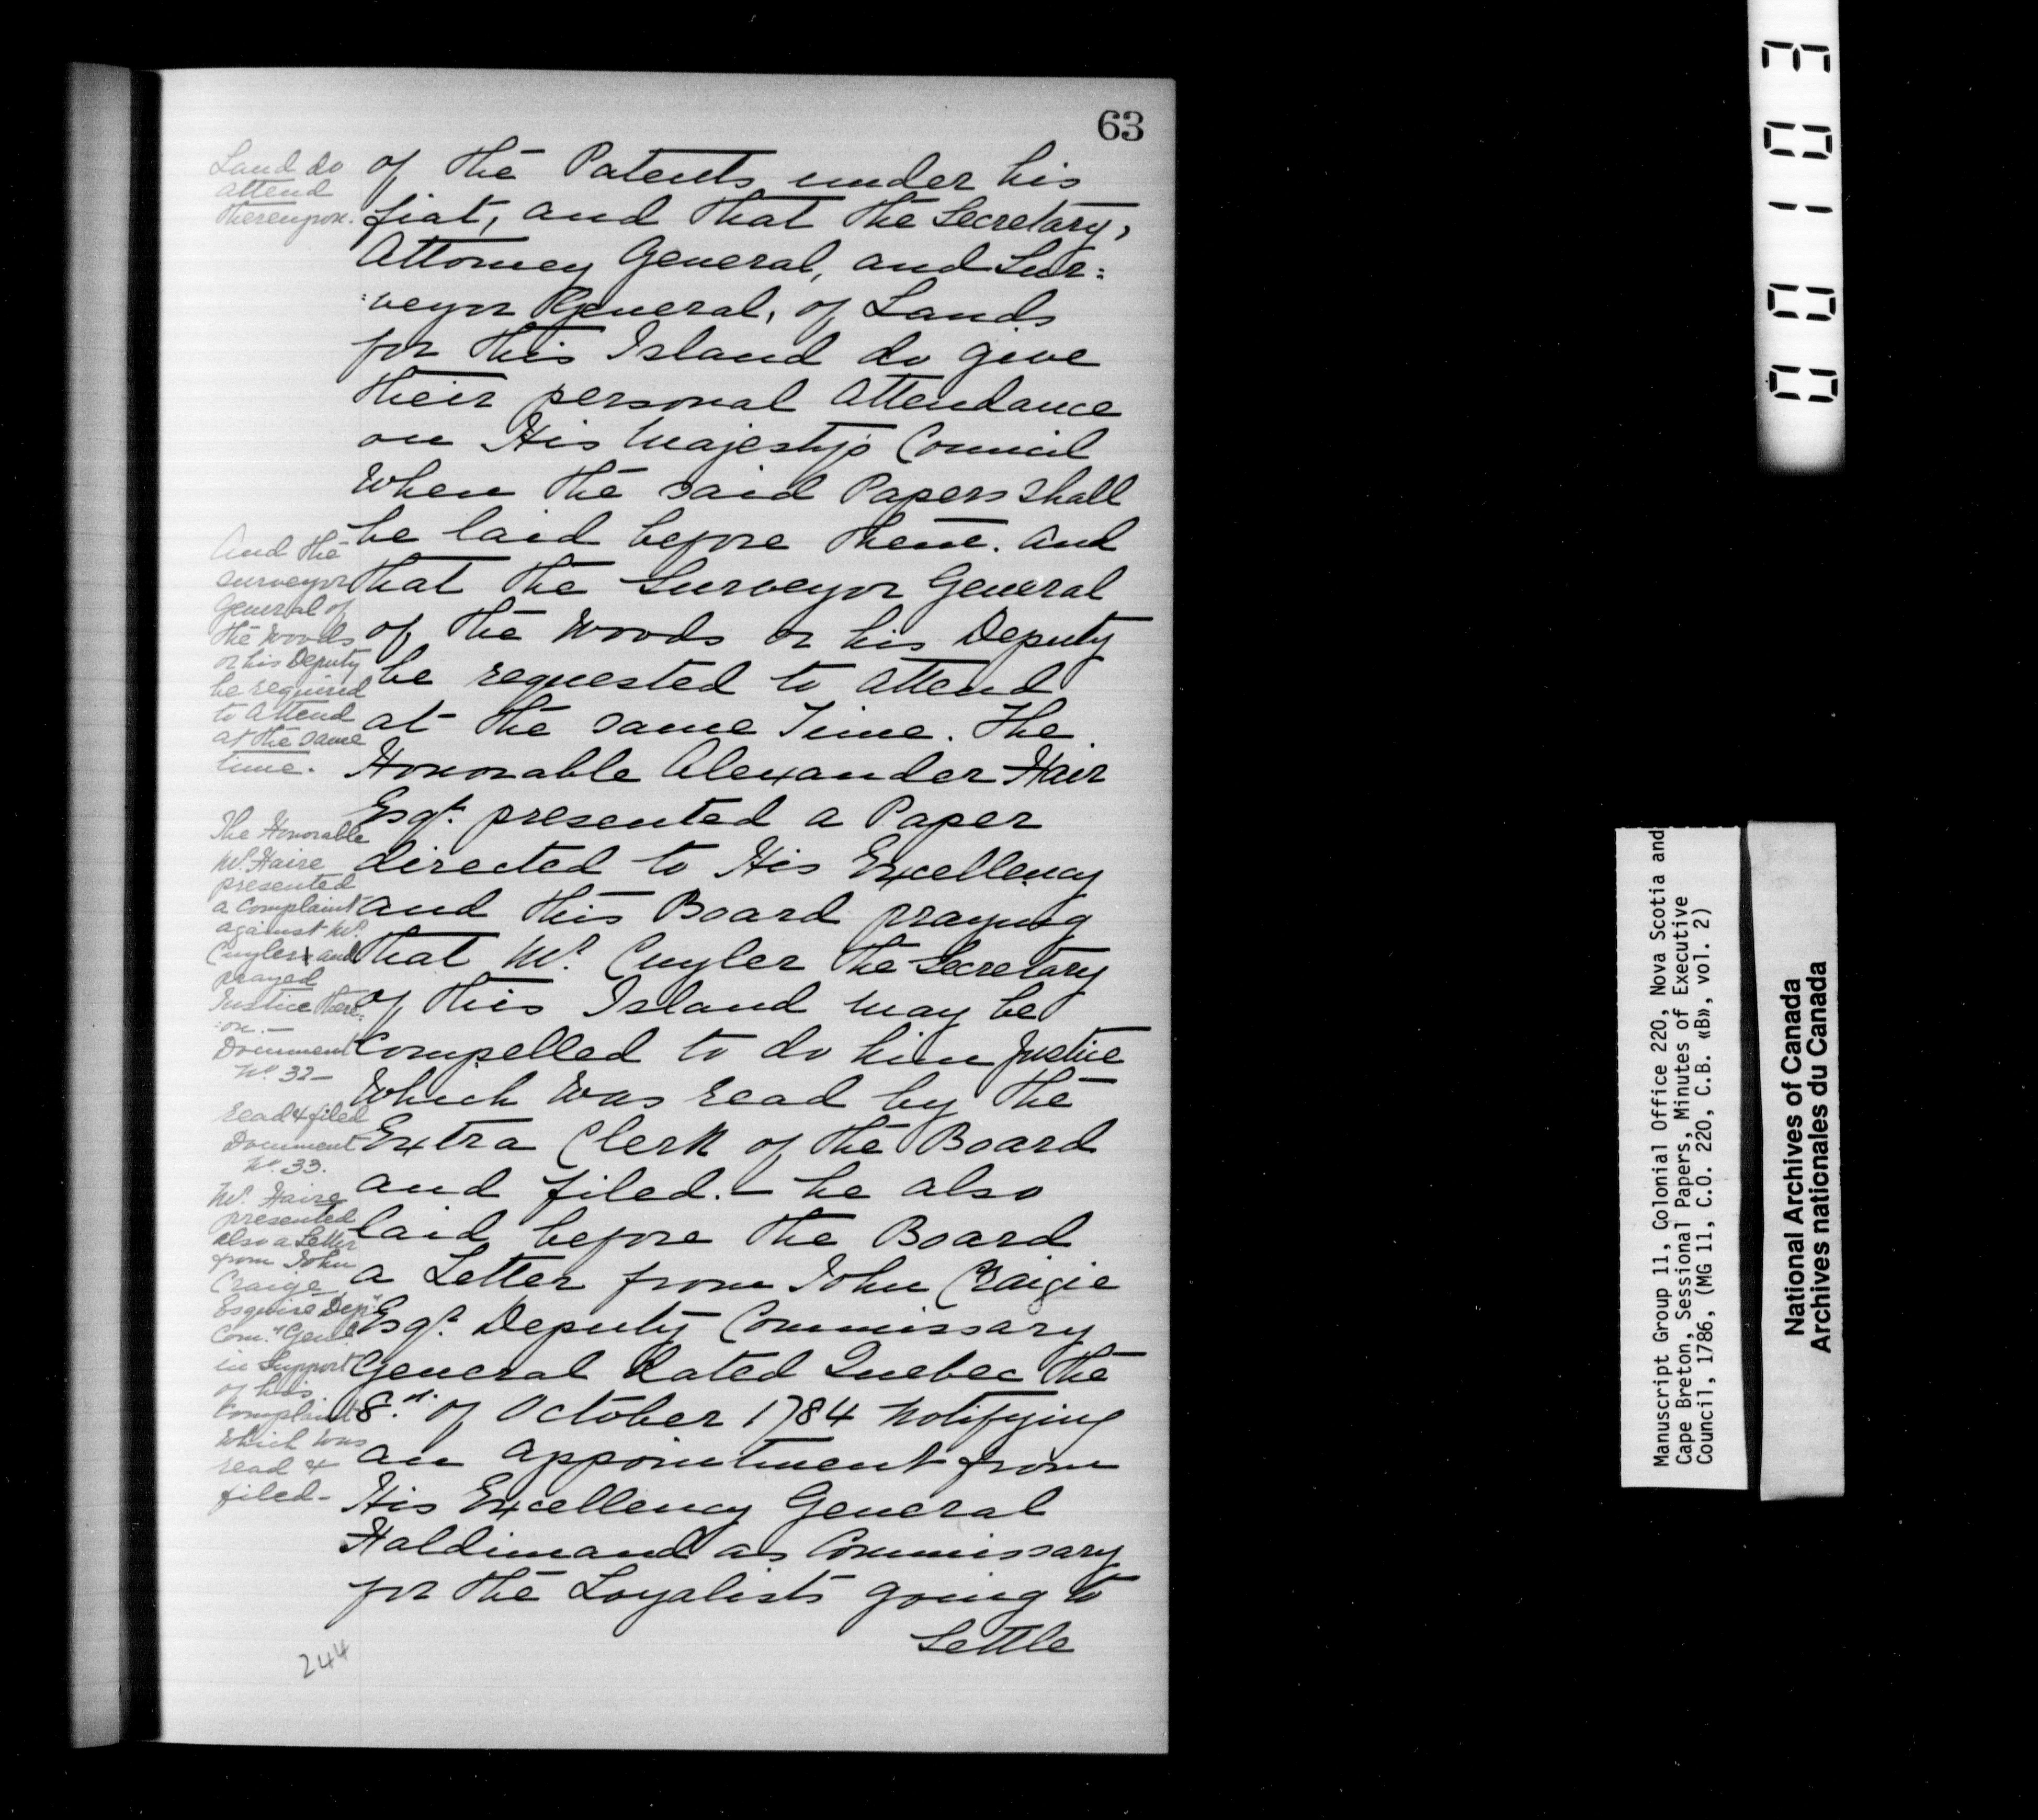 63
Land do
attend
thereupon.
of the Patents under his
fiat, and that the Secretary,
Attorney General, and Sur=
=veyor General, of Lands
for this Island do give
their personal Attendance
on His Majesty's Council
When the said Papers shall
be laid before them. And
that the Surveyor General
of the Woods or his Deputy
be requested to attend
at the same Time. The
Honorable Alexander Hair
Esqr. presented a Paper
directed to His Excellency
and this Board praying
that Mr. Cuyler the Secretary
of this Island may be
Compelled to do him Justice
Which was read by the
Extra Clerk of the Board
and filed. — he also
laid before the Board
a Letter from John Craigie
Esqr. Deputy Commissary
General dated Quebec the
8.th of October 1784 Notifying
an appointment from
His Excellency General
Haldimand as Commissary
for the Loyalists going to
Settle
And the
surveyor
General of
the Woods
or his Deputy
be required
to Attend
at the same
time.
The Honorable
Mr. Haire
presented
a Complaint
against Mr.
Cuyler and
prayed
Justice there=
=on.—
Document
No. 32—
read & filed
Document
No. 33.
Mr. Haire
presented
also a Letter
from John
Craige
Esquire Depy.
Com.y Genl
in Support
of his
Complaint
which was
read &
filed—
244
00103
Manuscript Group 11, Colonial Office 220, Nova Scotia and
Cape Breton, Sessional Papers, Minutes of Executive
Council, 1786, (MG 11, C.O. 220, C.B. «B», vol. 2)
National Archives of Canada
Archives nationales du Canada